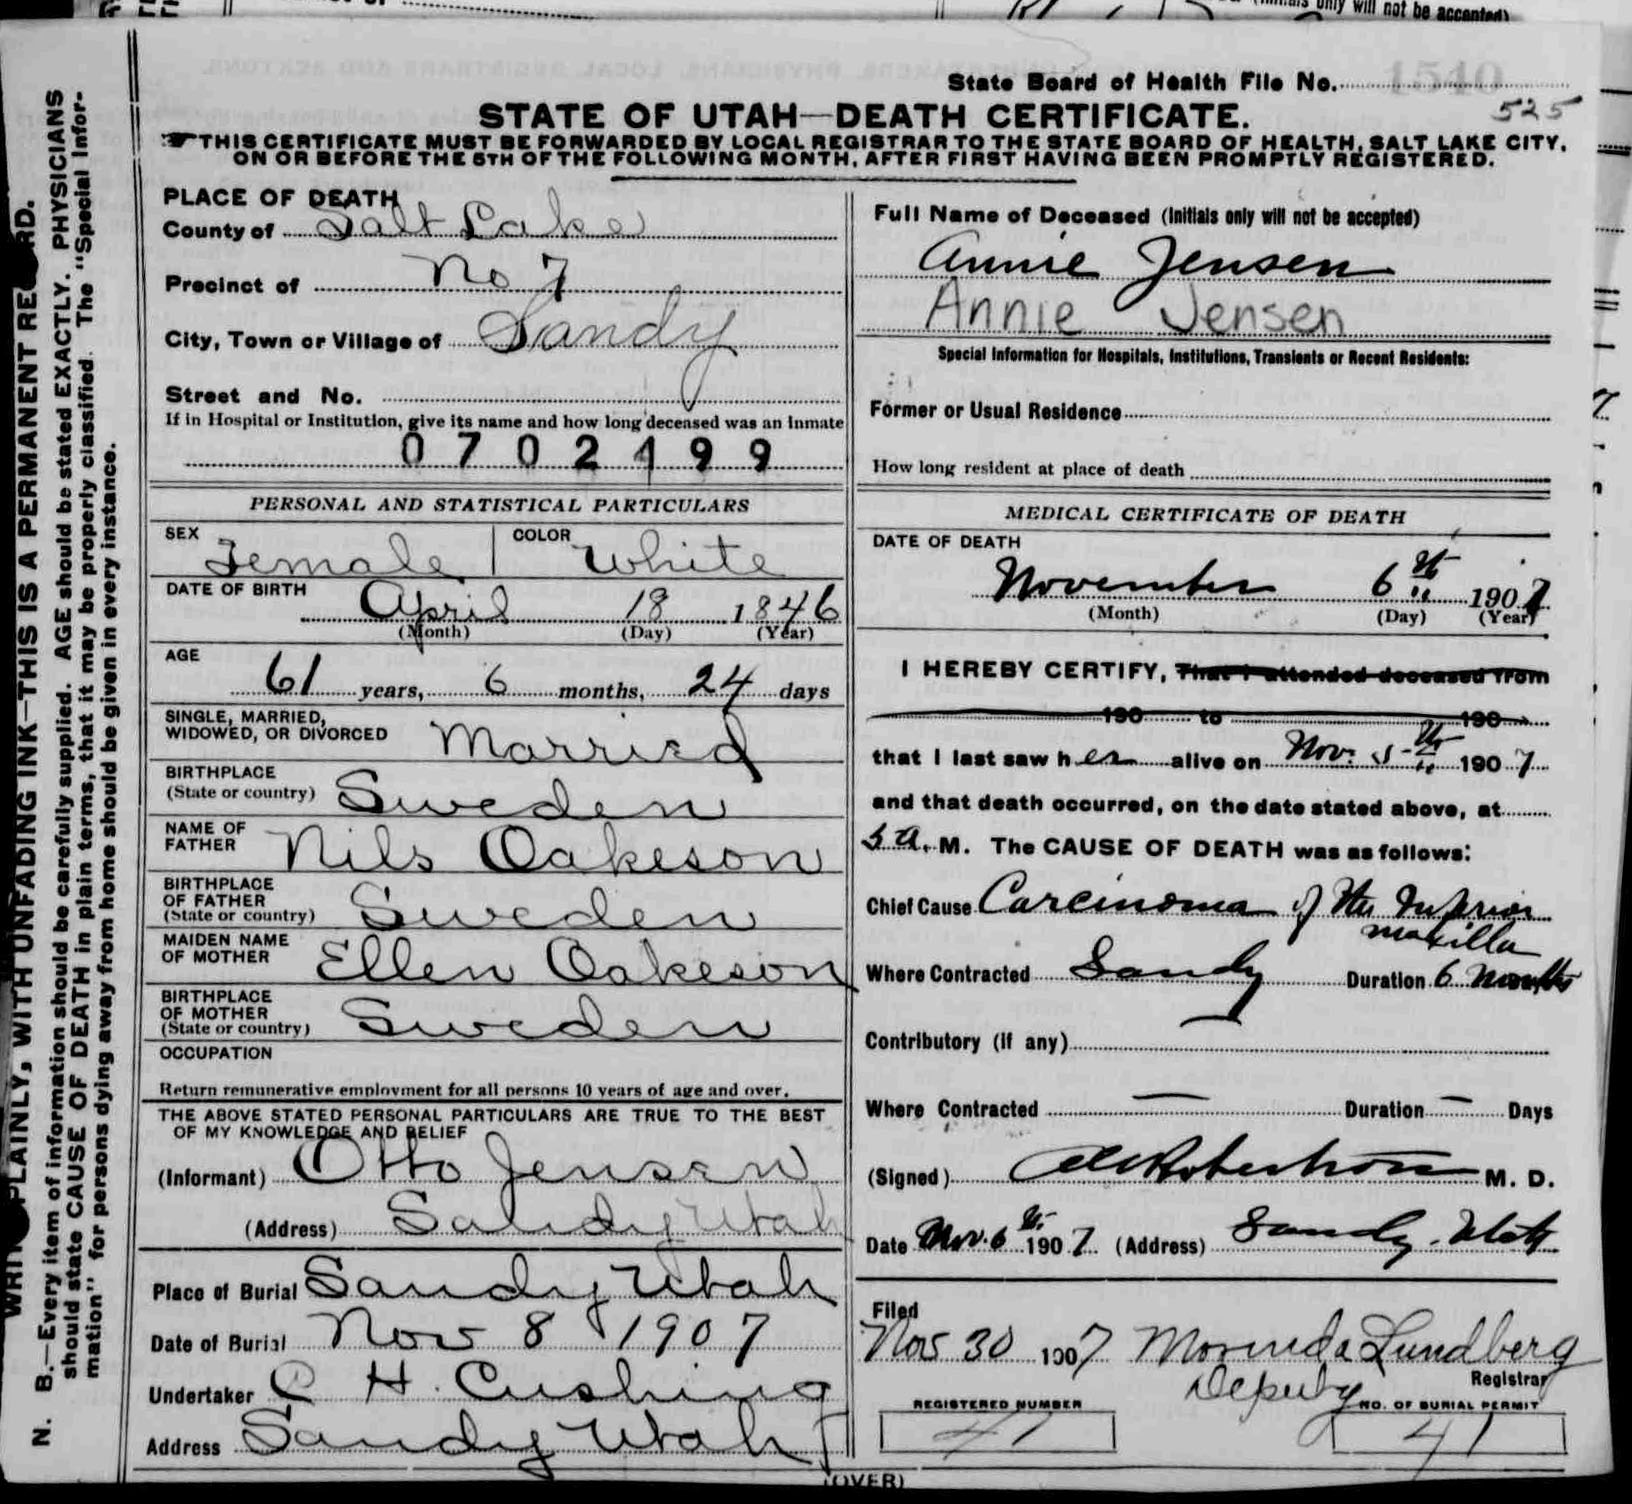 will not be accepted)
State Board of Health File No. 1540
525
STATE OF UTAH—DEATH CERTIFICATE.
THIS CERTIFICATE MUST BE FORWARDED BY LOCAL REGISTRAR TO THE STATE BOARD OF HEALTH, SALT LAKE CITY,
ON OR BEFORE THE 5TH OF THE FOLLOWING MONTH, AFTER FIRST HAVING BEEN PROMPTLY REGISTERED.
PLAINLY, WITH UNFADING INK—THIS IS A PERMANENT
N. B.—Every item of information should be carefully supplied. AGE should be stated EXACTLY. PHYSICIANS
should state CAUSE OF DEATH in plain terms, that it may be properly classified. The "Special Infor-
mation" for persons dying away from home should be given in every instance.
PLACE OF DEATH
County of Salt Lake
Precinct of No 7
City, Town or Village of Sandy
Street and No.
If in Hospital or Institution, give its name and how long deceased was an inmate
0702199
PERSONAL AND STATISTICAL PARTICULARS
SEX Female COLOR White
DATE OF BIRTH April 18 1846
(Month) (Day) (Year)
AGE
61 years, 6 months, 24 days
SINGLE, MARRIED,
WIDOWED, OR DIVORCED Married
BIRTHPLACE
(State or country) Sweden
NAME OF
FATHER Nils Oakeson
BIRTHPLACE
OF FATHER
(State or country) Sweden
MAIDEN NAME
OF MOTHER Ellen Oakeson
BIRTHPLACE
OF MOTHER
(State or country) Sweden
OCCUPATION
Return remunerative employment for all persons 10 years of age and over.
THE ABOVE STATED PERSONAL PARTICULARS ARE TRUE TO THE BEST
OF MY KNOWLEDGE AND BELIEF
(Informant) Otto Jensen
(Address) Sandy Utah
Place of Burial Sandy Utah
Date of Burial Nov 8 1907
Undertaker C H. Cushing
Address Sandy Utah
Full Name of Deceased (Initials only will not be accepted)
Annie Jensen
Annie Jensen
Special Information for Hospitals, Institutions, Transients or Recent Residents:
Former or Usual Residence
How long resident at place of death
MEDICAL CERTIFICATE OF DEATH
DATE OF DEATH
November 6th 1907
(Month) (Day) (Year)
I HEREBY CERTIFY, That I attended deceased from
190 to 190
that I last saw her alive on Nov. 5th 1907
and that death occurred, on the date stated above, at
5 A. M. The CAUSE OF DEATH was as follows:
Chief Cause Carcinoma of the Inferior
maxilla
Where Contracted Sandy Duration 6 months
Contributory (if any)
Where Contracted — Duration — Days
(Signed) Robertson M. D.
Date Nov. 6th 1907 (Address) Sandy. Utah
Filed
Nov 30 1907 Morinda Lundberg
Deputy Registrar
REGISTERED NUMBER NO. OF BURIAL PERMIT
41 41
(OVER)